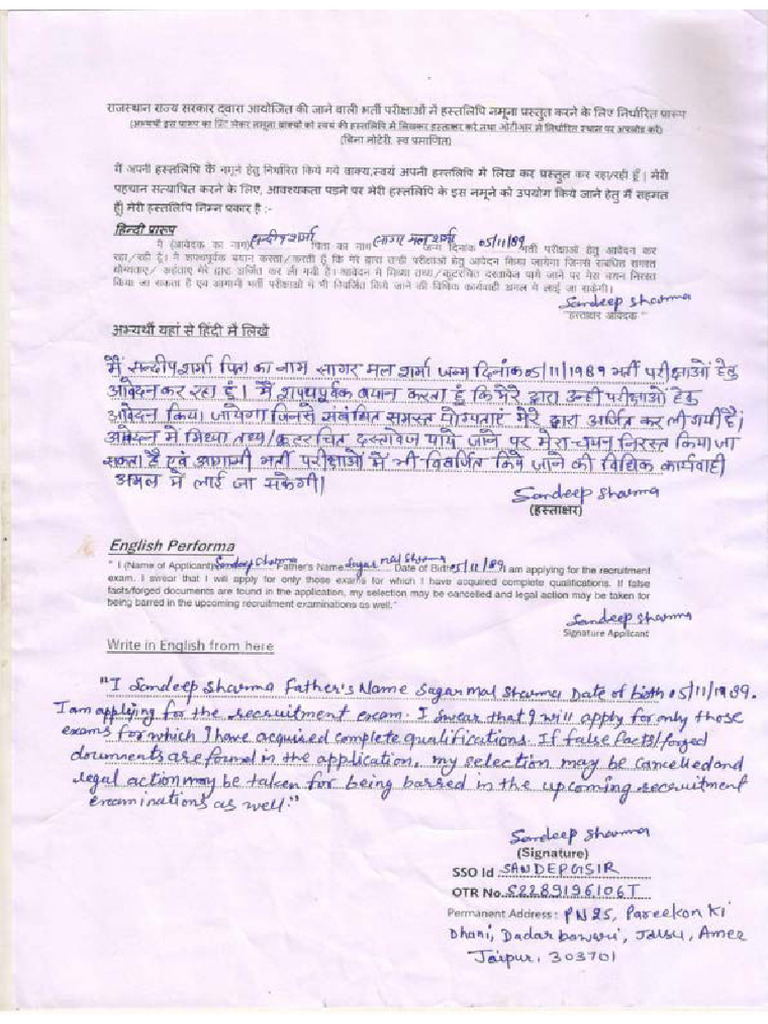 राजस्थान राज्य सरकार दवारा आयोजित की जाने वाली भर्ती परीक्षाओं में हस्तलिपि नमूना प्रस्तुत करने के लिए निर्धारित प्रारूप
(अभ्यर्थी इस प्रारूप का प्रिंट लेकर नमूना वाक्यों को स्वयं की हस्तलिपि में लिखकर हस्ताक्षर करें तथा ओटीआर में निर्धारित स्थान पर अपलोड करें)
(बिना नोटेरी, स्व प्रमाणित)
में अपनी हस्तलिपि के नमूने हेतु निर्धारित किये गये वाक्य,स्वयं अपनी हस्तलिपि मे लिख कर प्रस्तुत कर रहा/रही हूँ। मेरी
पहचान सत्यापित करने के लिए, आवश्यकता पडने पर मेरी हस्तलिपि के इस नमूने को उपयोग किये जाने हेतु मैं सहमत
हूँ। मेरी हस्तलिपि निम्न प्रकार है :-
हिन्दी प्रारूप
मै (आवेदक का नाम) सन्दीप शर्मा पिता का नाम सागर मल शर्मा जन्म दिनांक 05/11/89 भर्ती परीक्षाओं हेतु आवेदन कर
रहा/रही हूँ। मै शपथपूर्वक बयान करता/करती हूँ कि मेरे द्वारा उन्ही परीक्षाओं हेतु आवेदन किया जायेगा जिनसे संबंधित समस्त
योग्यताएं/अर्हताए मेरे द्वारा अर्जित कर ली गयी है। आवेदन में मिथ्या तथ्य/कूटरचित दस्तावेज पाये जाने पर मेरा चयन निरस्त
किया जा सकता है एवं आगामी भर्ती परीक्षाओं में भी विवर्जित किये जाने की विधिक कार्यवाही अमल मे लाई जा सकेगी।
Sandeep Sharma
"हस्ताक्षर आवेदक"
अभ्यर्थी यहां से हिंदी में लिखें
मैं सन्दीप शर्मा पिता का नाम सागर मल शर्मा जन्म दिनांक 05/11/1989 भर्ती परीक्षाओं हेतु
आवेदन कर रहा हूं। मैं शपथपूर्वक बयान करता हूं कि मेरे द्वारा उन्ही परीक्षाओं हेतु
आवेदन किया जायेगा जिनसे संबंधित समस्त योग्यताएं मेरे द्वारा अर्जित कर ली गयी है।
आवेदन मे मिथ्या तथ्य/कूटरचित दस्तावेज पाये जाने पर मेरा चयन निरस्त किया जा
सकता है एवं आगामी भर्ती परीक्षाओं में भी विवर्जित किये जाने की विधिक कार्यवाही
अमल में लाई जा सकेगी।
Sandeep Sharma
(हस्ताक्षर)
English Performa
" I (Name of Applicant) Sandeep Sharma Father's Name Sagar mal Sharma Date of Birth 05/11/89 I am applying for the recruitment
exam. I swear that I will apply for only those exams for which I have acquired complete qualifications. If false
fasts/forged documents are found in the application, my selection may be cancelled and legal action may be taken for
being barred in the upcoming recruitment examinations as well."
Sandeep Sharma
Signature Applicant
Write in English from here
"I Sandeep Sharma Father's Name Sagar Mal Sharma Date of birth 05/11/1989.
I am applying for the recruitment exam. I swear that I will apply for only those
exams for which I have acquired complete qualifications. If false facts/forged
documents are found in the application, my selection may be cancelled and
legal action may be taken for being barred in the upcoming recruitment
examinations as well."
Sandeep Sharma
(Signature)
SSO Id SANDEPGSIR
OTR No. S2289196106T
Permanent Address : PN 25, Pareekon Ki
Dhani, Dadar bawari, Jaisu, Amer
Jaipur. 303701